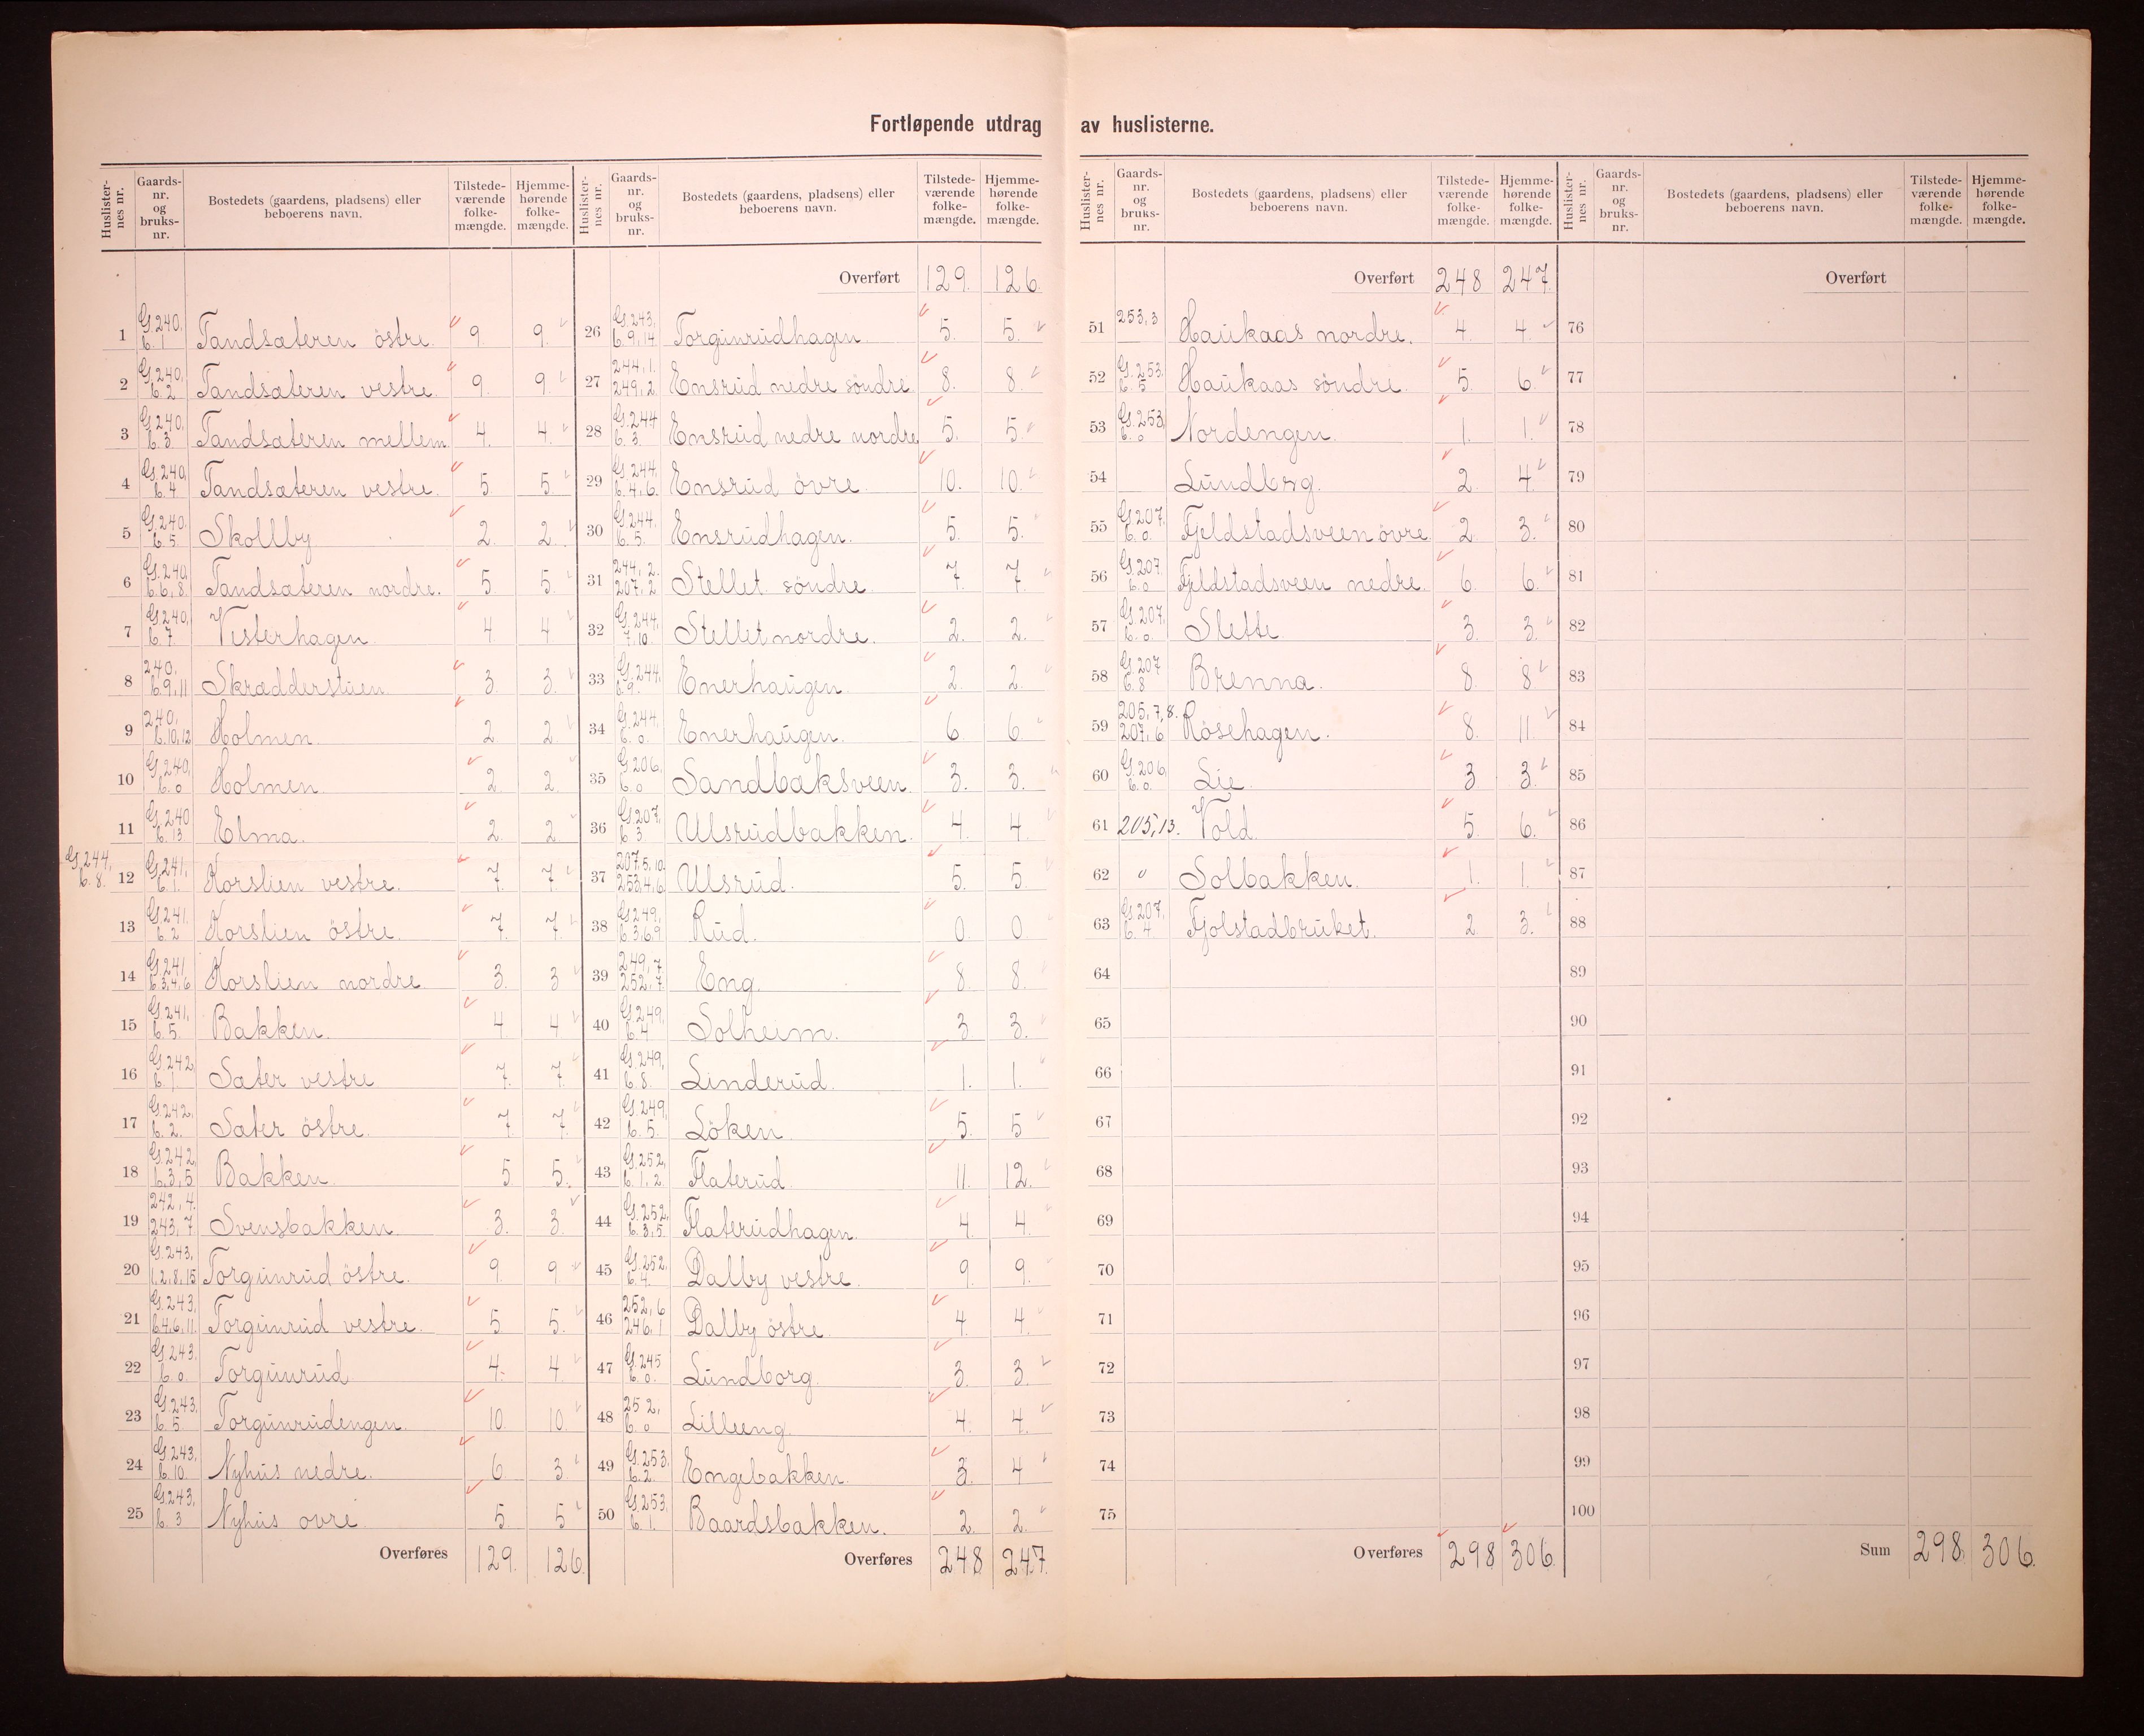 Fortløpende utdrag av huslisterne.
Huslister-nes nr. Gaards-nr. og bruks-nr. Bostedets (gaardens, pladsens) eller beboerens navn. Tilstede-værende folke-mængde. Hjemme-hørende folke-mængde.
1 G. 240, b. 1 Tandsæteren östre. 9. 9.
2 G. 240, b. 2 Tandsæteren vestre. 9. 9.
3 G. 240, b. 3 Tandsæteren mellem. 4. 4.
4 G. 240, b. 4 Tandsæteren vestre. 5. 5.
5 G. 240. b. 5. Skollby 2. 2.
6 G. 240, b. 6, 8. Tandsæteren nordre. 5 5.
7 G. 240, b. 7 Vesterhagen. 4 4
8 240. b. 9, 11 Skrædderstuen. 3. 3.
9 240. b. 10, 12 Holmen. 2 2
10 G. 240, b. 0 Holmen. 2. 2.
11 G. 240 b. 13 Elma. 2. 2
G. 244, b. 8. 12 G. 241, b. 1. Korslien vestre. 7. 7.
13 G. 241. b. 2 Korslien östre. 7. 7.
14 G. 241 b. 3, 4, 6 Korslien nordre 3. 3
15 G. 241, b. 5. Bakken. 4 4
16 G. 242, b. 1 Sæter vestre 7. 7.
17 G. 242, b. 2. Sæter östre. 7. 7.
18 G. 242, b. 3, 5 Bakken. 5 5.
19 242, 4. 243, 7 Svensbakken. 3. 3
20 G. 243, 1, 2, 8, 15 Torgunrud östre. 9. 9
21 G. 243, b. 4, 6, 11. Torgunrud vestre. 5 5.
22 G. 243. b. 0 Torgunrud 4. 4
23 G. 243, b. 5 Torgunrudengen. 10. 10
24 G. 243, b. 10 Nyhus nedre. 6. 3.
25 G. 243, b. 3 Nyhus ovre 5 5
Overføres 129. 126.
Huslister-nes nr. Gaards-nr. og bruks-nr. Bostedets (gaardens, pladsens) eller beboerens navn. Tilstede-værende folke-mængde. Hjemme-hørende folke-mængde.
Overført 129. 126.
26 G. 243, b. 9, 14 Torgunrudhagen 5. 5.
27 244, 1. 249, 2. Ensrud nedre söndre 8. 8.
28 G. 244 b. 3. Ensrud nedre nordre 5. 5.
29 G. 244, b. 4, 6. Ensrud övre. 10. 10.
30 G. 244, b. 5. Ensrudhagen. 5. 5.
31 244, 2. 207, 2. Stellet söndre. 7. 7.
32 G. 244, 7, 10. Stellet nordre. 2. 2.
33 G. 244, b. 9. Enerhaugen. 2. 2.
34 G. 244, b. 0. Enerhaugen. 6. 6.
35 G. 206, b. 0 Sandbæksveen. 3. 3.
36 G. 207, b. 3 Ulsrudbakken. 4. 4.
37 207, 5, 10. 253, 4, 6 Ulsrud. 5. 5.
38 G. 249, b. 3, 6, 9 Rud. 0. 0
39 249, 7 252, 7. Eng. 8. 8.
40 G. 249, b. 4 Solheim. 3 3.
41 G. 249, b. 8. Linderud. 1. 1.
42 G. 249, b. 5. Löken 5. 5
43 G. 252, b. 1, 2. Flaterud. 11. 12.
44 G. 252, b. 3, 5. Flaterudhagen. 4. 4.
45 G. 252, b. 4. Dalby vestre. 9. 9.
46 252, 6 246, 1 Dalby östre. 4. 4.
47 G. 245 b. 0. Lundborg. 3. 3.
48 252, b. 0 Lilleeng. 4. 4.
49 G. 253, b. 2. Engebakken. 3. 4
50 G. 253, b. 1. Baardsbakken. 2. 2.
Overføres 248 247.
Huslister-nes nr. Gaards-nr. og bruks-nr. Bostedets (gaardens, pladsens) eller beboerens navn. Tilstede-værende folke-mængde. Hjemme-hørende folke-mængde.
Overført 248 247.
51 253, 3 Haukaas nordre. 4. 4
52 G. 253. b. 5 Haukaas söndre. 5. 6.
53 G. 253, b. 0 Nordengen. 1. 1.
54 Lundberg. 2. 4.
55 G. 207. b. 0. Fjeldstadsveen övre. 2. 3.
56 G. 207. b. 0 Fjeldstadsveen nedre. 6. 6.
57 G. 207. b. 0. Slette 3. 3.
58 G. 207 b. 8 Brenna. 8. 8
59 205, 7, 8. 207, 6 Rösehagen. 8. 11.
60 G. 206, b. 0. Lie. 3 3.
61 205, 13. Vold. 5. 6.
62 " Solbakken. 1. 1.
63 G. 207, b. 4. Fjolstadbruket. 2. 3.
64
65
66
67
68
69
70
71
72
73
74
75
Overføres 298 306.
Huslister-nes nr. Gaards-nr. og bruks-nr. Bostedets (gaardens, pladsens) eller beboerens navn. Tilstede-værende folke-mængde. Hjemme-hørende folke-mængde.
Overført
76
77
78
79
80
81
82
83
84
85
86
87
88
89
90
91
92
93
94
95
96
97
98
99
100
Sum 298. 306.